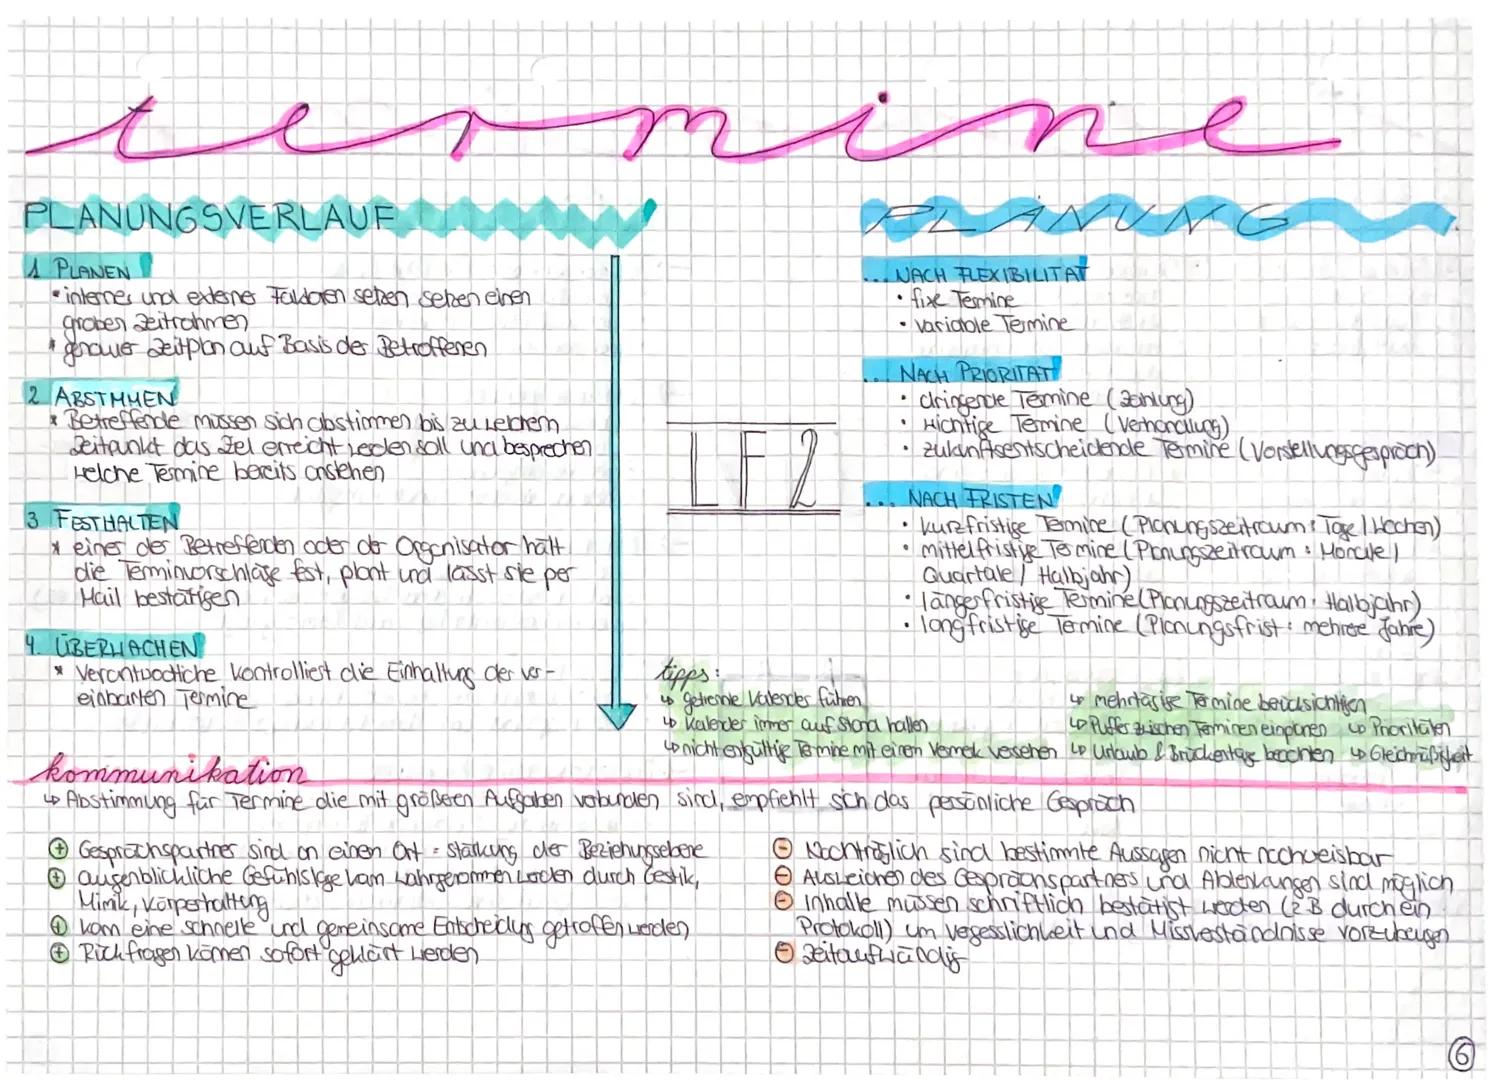 termine
PLANUNGSVERLAUF
1 PLANEN
• interne und externe Faktoren setzen setzen einen
groben Zeitrahmen
• genauer Zeitplan auf Basis der Betroffenen
2 ABSTIMMEN
* Betreffende müssen sich abstimmen bis zu welchem
Zeitpunkt das Ziel erreicht werden soll und besprechen
welche Termine bereits anstehen
3 FESTHALTEN
* einer der Betreffenden oder der Organisator hält
die Terminvorschläge fest, plant und lässt sie per
Mail bestätigen
4. ÜBERWACHEN
* Verantwortliche kontrolliert die Einhaltung der ver-
einbarten Termine
LF 2
PLANUNG
... NACH FLEXIBILITÄT
• fixe Termine
• variable Termine
... NACH PRIORITÄT
• dringende Termine (Zahlung)
• wichtige Termine (Verhandlung)
• zukunftsentscheidende Termine (Vorstellungsgespräch)
... NACH FRISTEN
• kurzfristige Termine (Planungszeitraum: Tage / Wochen)
• mittelfristige Termine (Planungszeitraum: Monate /
Quartale / Halbjahr)
• längerfristige Termine (Planungszeitraum: Halbjahr)
• langfristige Termine (Planungsfrist: mehrere Jahre)
tipps:
↳ getrennte Kalender führen
↳ Kalender immer auf Stand halten
↳ nicht engültig Termine mit einem Vermerk versehen
↳ mehrtägige Termine berücksichtigen
↳ Puffer zwischen Terminen einplanen ↳ Prioritäten
↳ Urlaub & Brückentage beachten ↳ Gleichmäßigkeit
kommunikation
↳ Abstimmung für Termine die mit größeren Aufgaben verbunden sind, empfiehlt sich das persönliche Gespräch
⊕ Gesprächspartner sind an einen Ort = stärkung der Beziehungsebene
⊕ augenblickliche Gefühlslage kann wahrgenommen werden durch Gestik,
Mimik, Körperhaltung
⊕ kann eine schnelle und gemeinsame Entscheidung getroffen werden
⊕ Rückfragen können sofort geklärt werden
⊖ Nachträglich sind bestimmte Aussagen nicht nachweisbar
⊖ Ausweichen des Gesprächspartners und Ablenkungen sind möglich
⊖ Inhalte müssen schriftlich bestätigt werden (z.B durch ein
Protokoll) um vegesslichkeit und Missverständnisse vorzubeugen
⊖ Zeitaufwändig
6